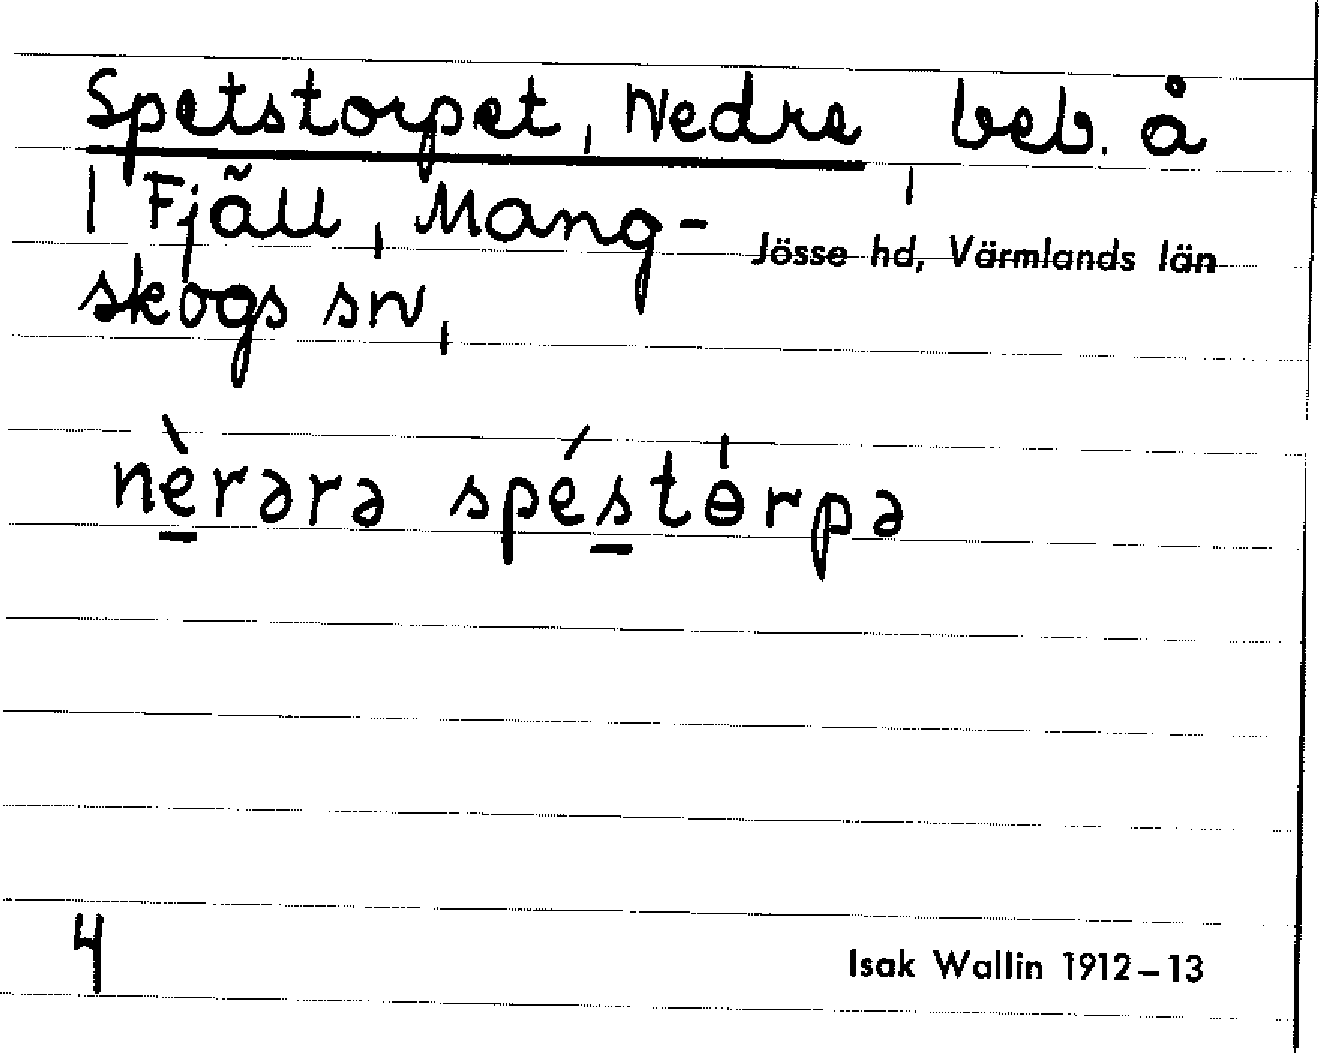 Spetstorpet, Nedre, beb. å
1 Fjäll, Mang-
Jösse hd, Värmlands län
skogs sn,
nèrərə spéstɵ́rpə
4
Isak Wallin 1912–13